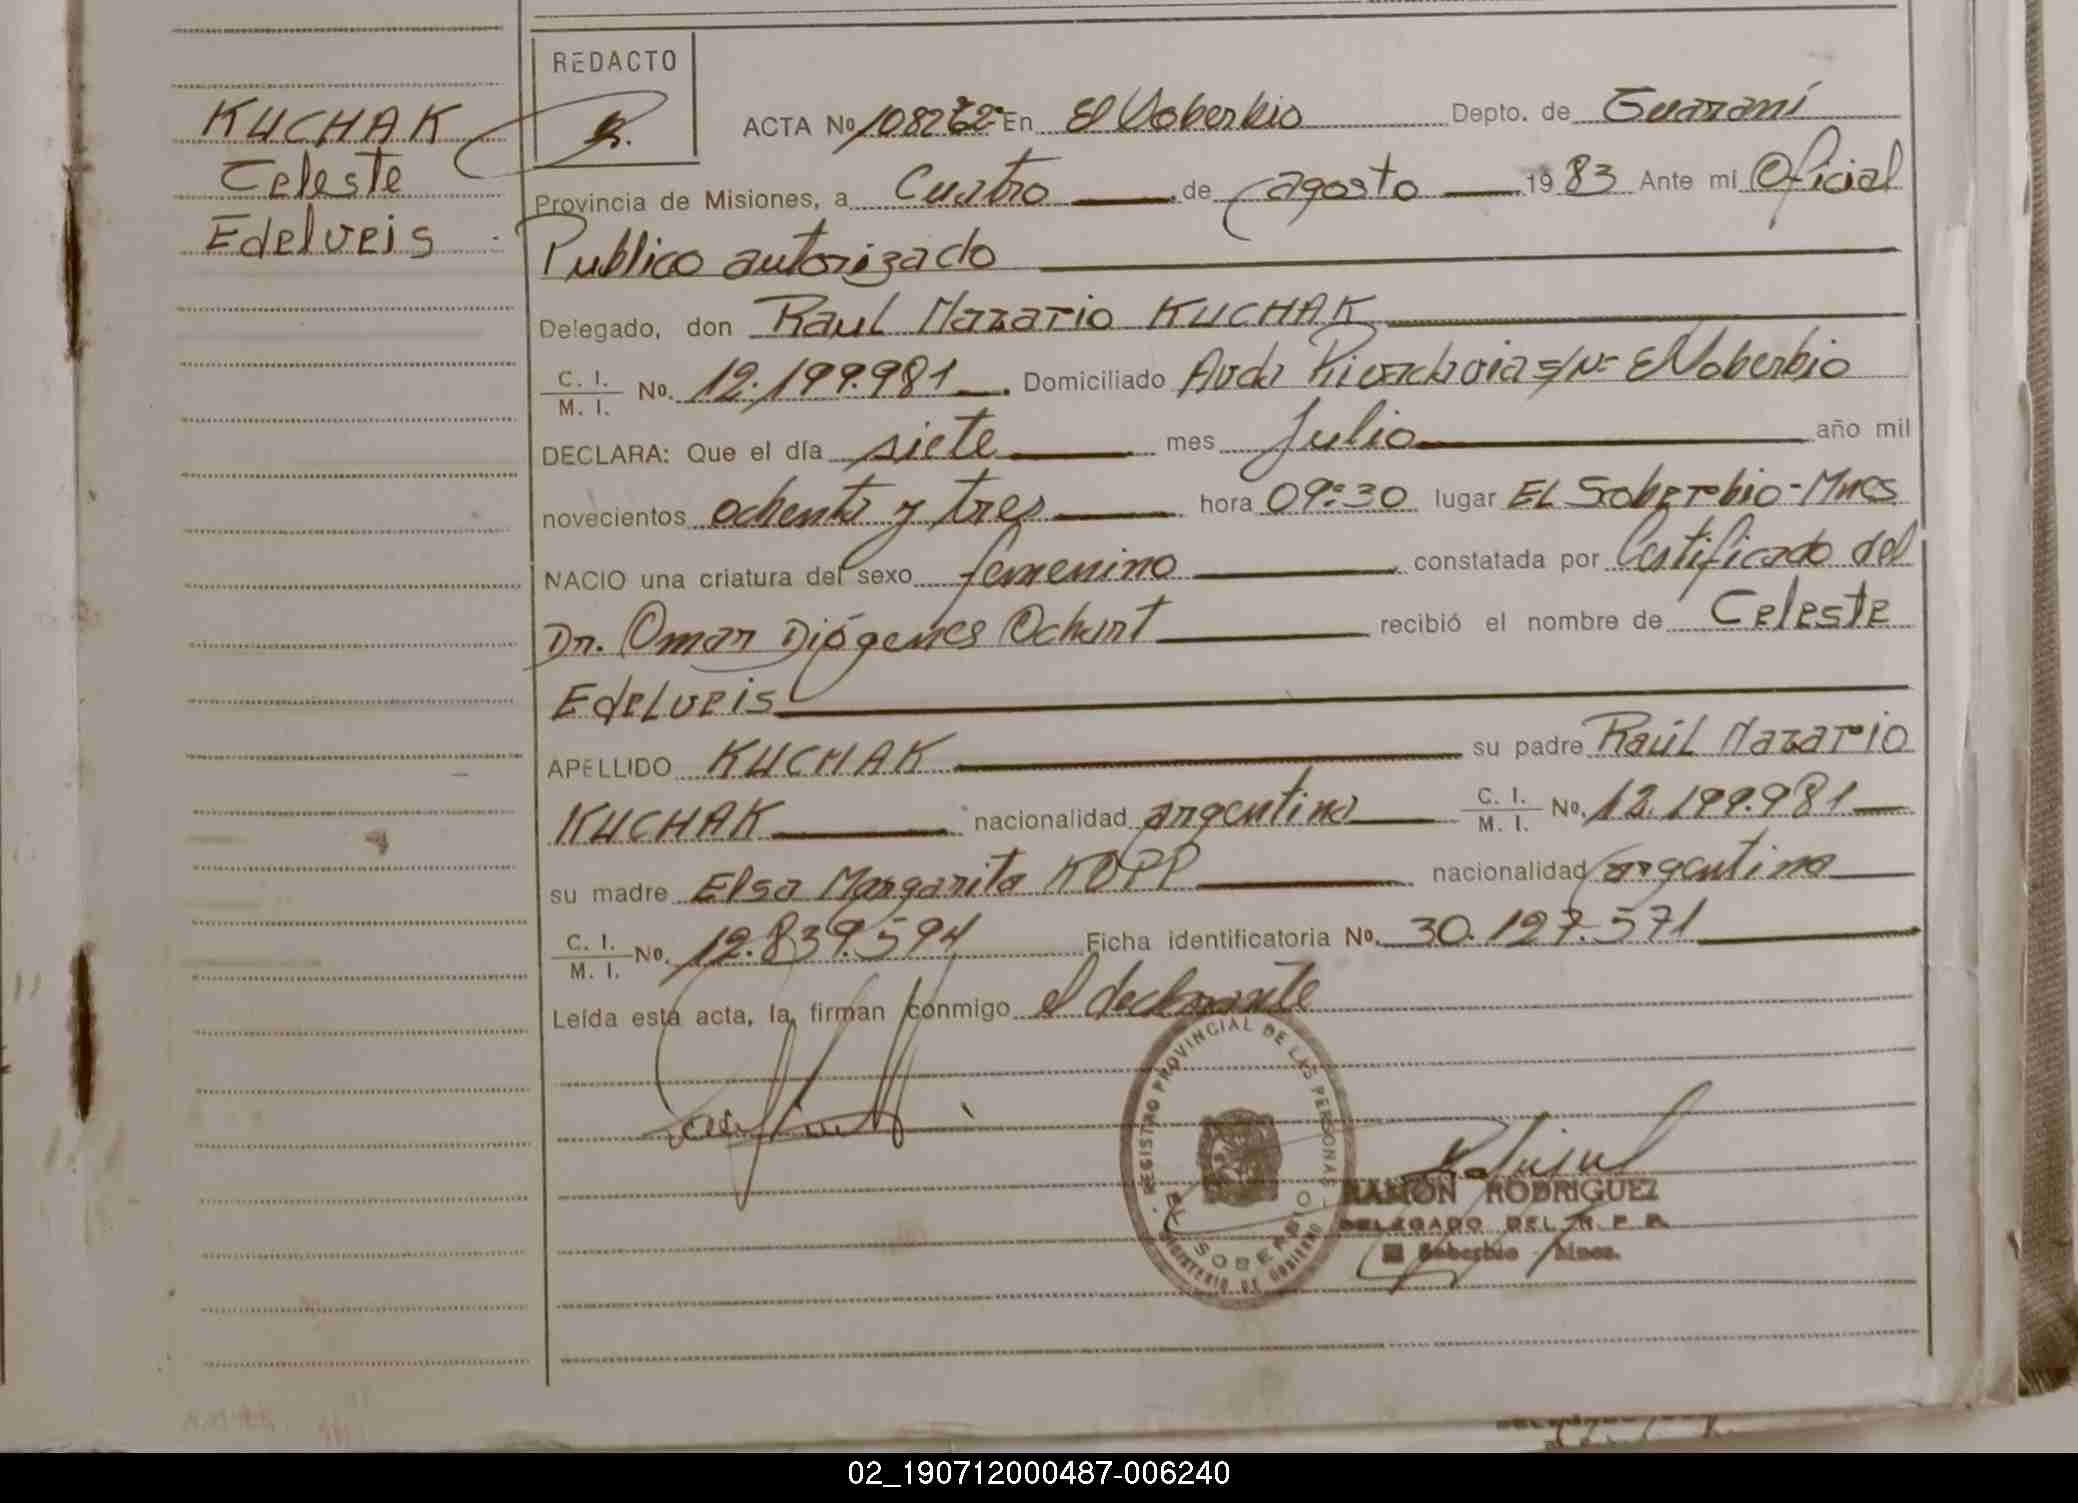 KUCHAK
Celeste
Edelveis
REDACTO
ACTA Nº En El Soberbio Depto. de Guaraní
Provincia de Misiones, a Cuatro de agosto 1983 Ante mi Oficial
Publico autorizado
Delegado, don Raul Nazario KUCHAK
C. I.
M. I. No. 12.199.981 Domiciliado Avda Rivadavia s/Nº El Soberbio
DECLARA: Que el día siete mes Julio año mil
novecientos ochenta y tres hora 09:30 lugar EL Soberbio-Mnes
NACIO una criatura del sexo femenino constatada por Certificado del
Dr. Omar Diógenes recibió el nombre de Celeste
Edelveis
APELLIDO KUCHAK su padre Raúl Nazario
KUCHAK nacionalidad argentina C. I.
M. I. No. 12.199.981
su madre Elsa Margarita KOPP nacionalidad argentina
C. I.
M. I. No. 12.839.594 Ficha identificatoria No. 30.127.571
Leída esta acta, la firman conmigo el declarante
REGISTRO PROVINCIAL DE LAS PERSONAS
EL SOBERBIO
MINISTERIO DE GOBIERNO
RAMON RODRIGUEZ
DELEGADO DEL R. P. P.
El Soberbio - Mnes.
02_190712000487-006240